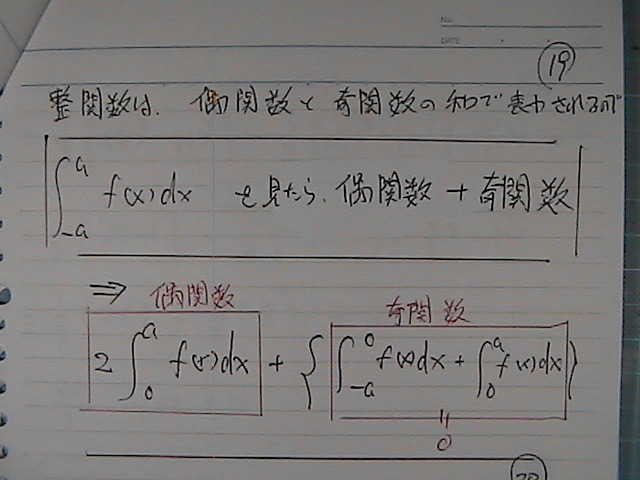 NO.
DATE
19
整関数は、偶関数と奇関数の和で表わされるので
∫_{-a}^{a} f(x)dx を見たら、偶関数+奇関数
⇒ 偶関数 奇関数
2∫_{0}^{a} f(x)dx + {∫_{-a}^{0} f(x)dx + ∫_{0}^{a} f(x)dx}
=
0
20